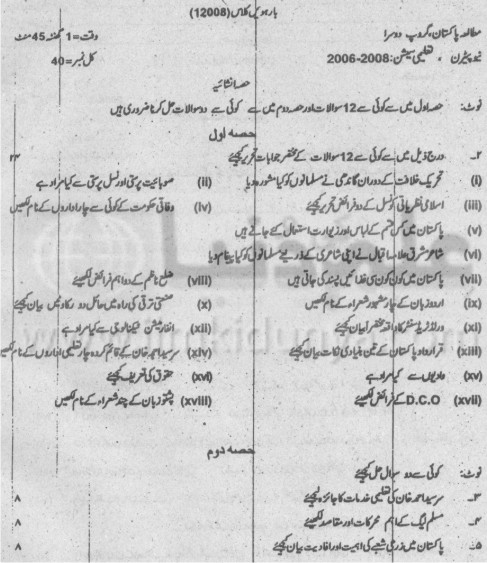 بارہویں کلاس (12008)
مطالعہ پاکستان، گروپ دوسرا وقت=1 گھنٹہ 45 منٹ
نیو پیٹرن ، تعلیمی سیشن: 2008-2006 کل نمبر=40
حصہ انشائیہ
نوٹ: حصہ اول میں سے کوئی سے 12 سوالات اور حصہ دوم میں سے کوئی سے دو سوالات حل کرنا ضروری ہیں
حصہ اول
۲۔ درج ذیل میں سے کوئی سے 12 سوالات کے مختصر جوابات تحریر کیجیئے ۲۴
(i) تحریک خلافت کے دوران گاندھی نے مسلمانوں کو کیا مشورہ دیا (ii) صوبائیت پرستی اور نسل پرستی سے کیا مراد ہے
(iii) اسلامی نظریاتی کونسل کے دو فرائض تحریر کیجیئے (iv) وفاقی حکومت کے کوئی سے چار اداروں کے نام لکھیں
(v) پاکستان میں کس قسم کے لباس اور زیورات استعمال کئے جاتے ہیں
(vi) شاعر مشرق علامہ اقبال نے اپنی شاعری کے ذریعے مسلمانوں کو کیا پیغام دیا
(vii) پاکستان میں کون کون سی غذائیں پسند کی جاتی ہیں (viii) ضلع ناظم کے دو اہم فرائض لکھیئے
(ix) اردو زبان کے چار مشہور شعراء کے نام لکھیں (x) صنعتی ترقی کی راہ میں حائل دو رکاوٹیں بیان کیجیئے
(xi) ورلڈ ٹریڈ سنٹر کا واقعہ مختصراً بیان کیجیئے (xii) انفارمیشن ٹیکنالوجی سے کیا مراد ہے
(xiii) قرارداد پاکستان کے تین بنیادی نکات بیان کیجیئے (xiv) سرسید احمد خان کے قائم کردہ چار تعلیمی اداروں کے نام لکھیں
(xv) وادیوں سے کیا مراد ہے (xvi) حقوق کی تعریف کیجیئے
(xvii) D.C.O کے فرائض لکھیئے (xviii) پشتو زبان کے چند شعراء کے نام لکھیں
حصہ دوم
نوٹ: کوئی سے دو سوال حل کیجیئے
۳۔ سرسید احمد خان کی تعلیمی خدمات کا جائزہ لیجیئے ۸
۴۔ مسلم لیگ کے اہم محرکات اور مقاصد لکھیئے ۸
۵۔ پاکستان میں زرعی شعبے کی اہمیت اور افادیت بیان کیجیئے ۸